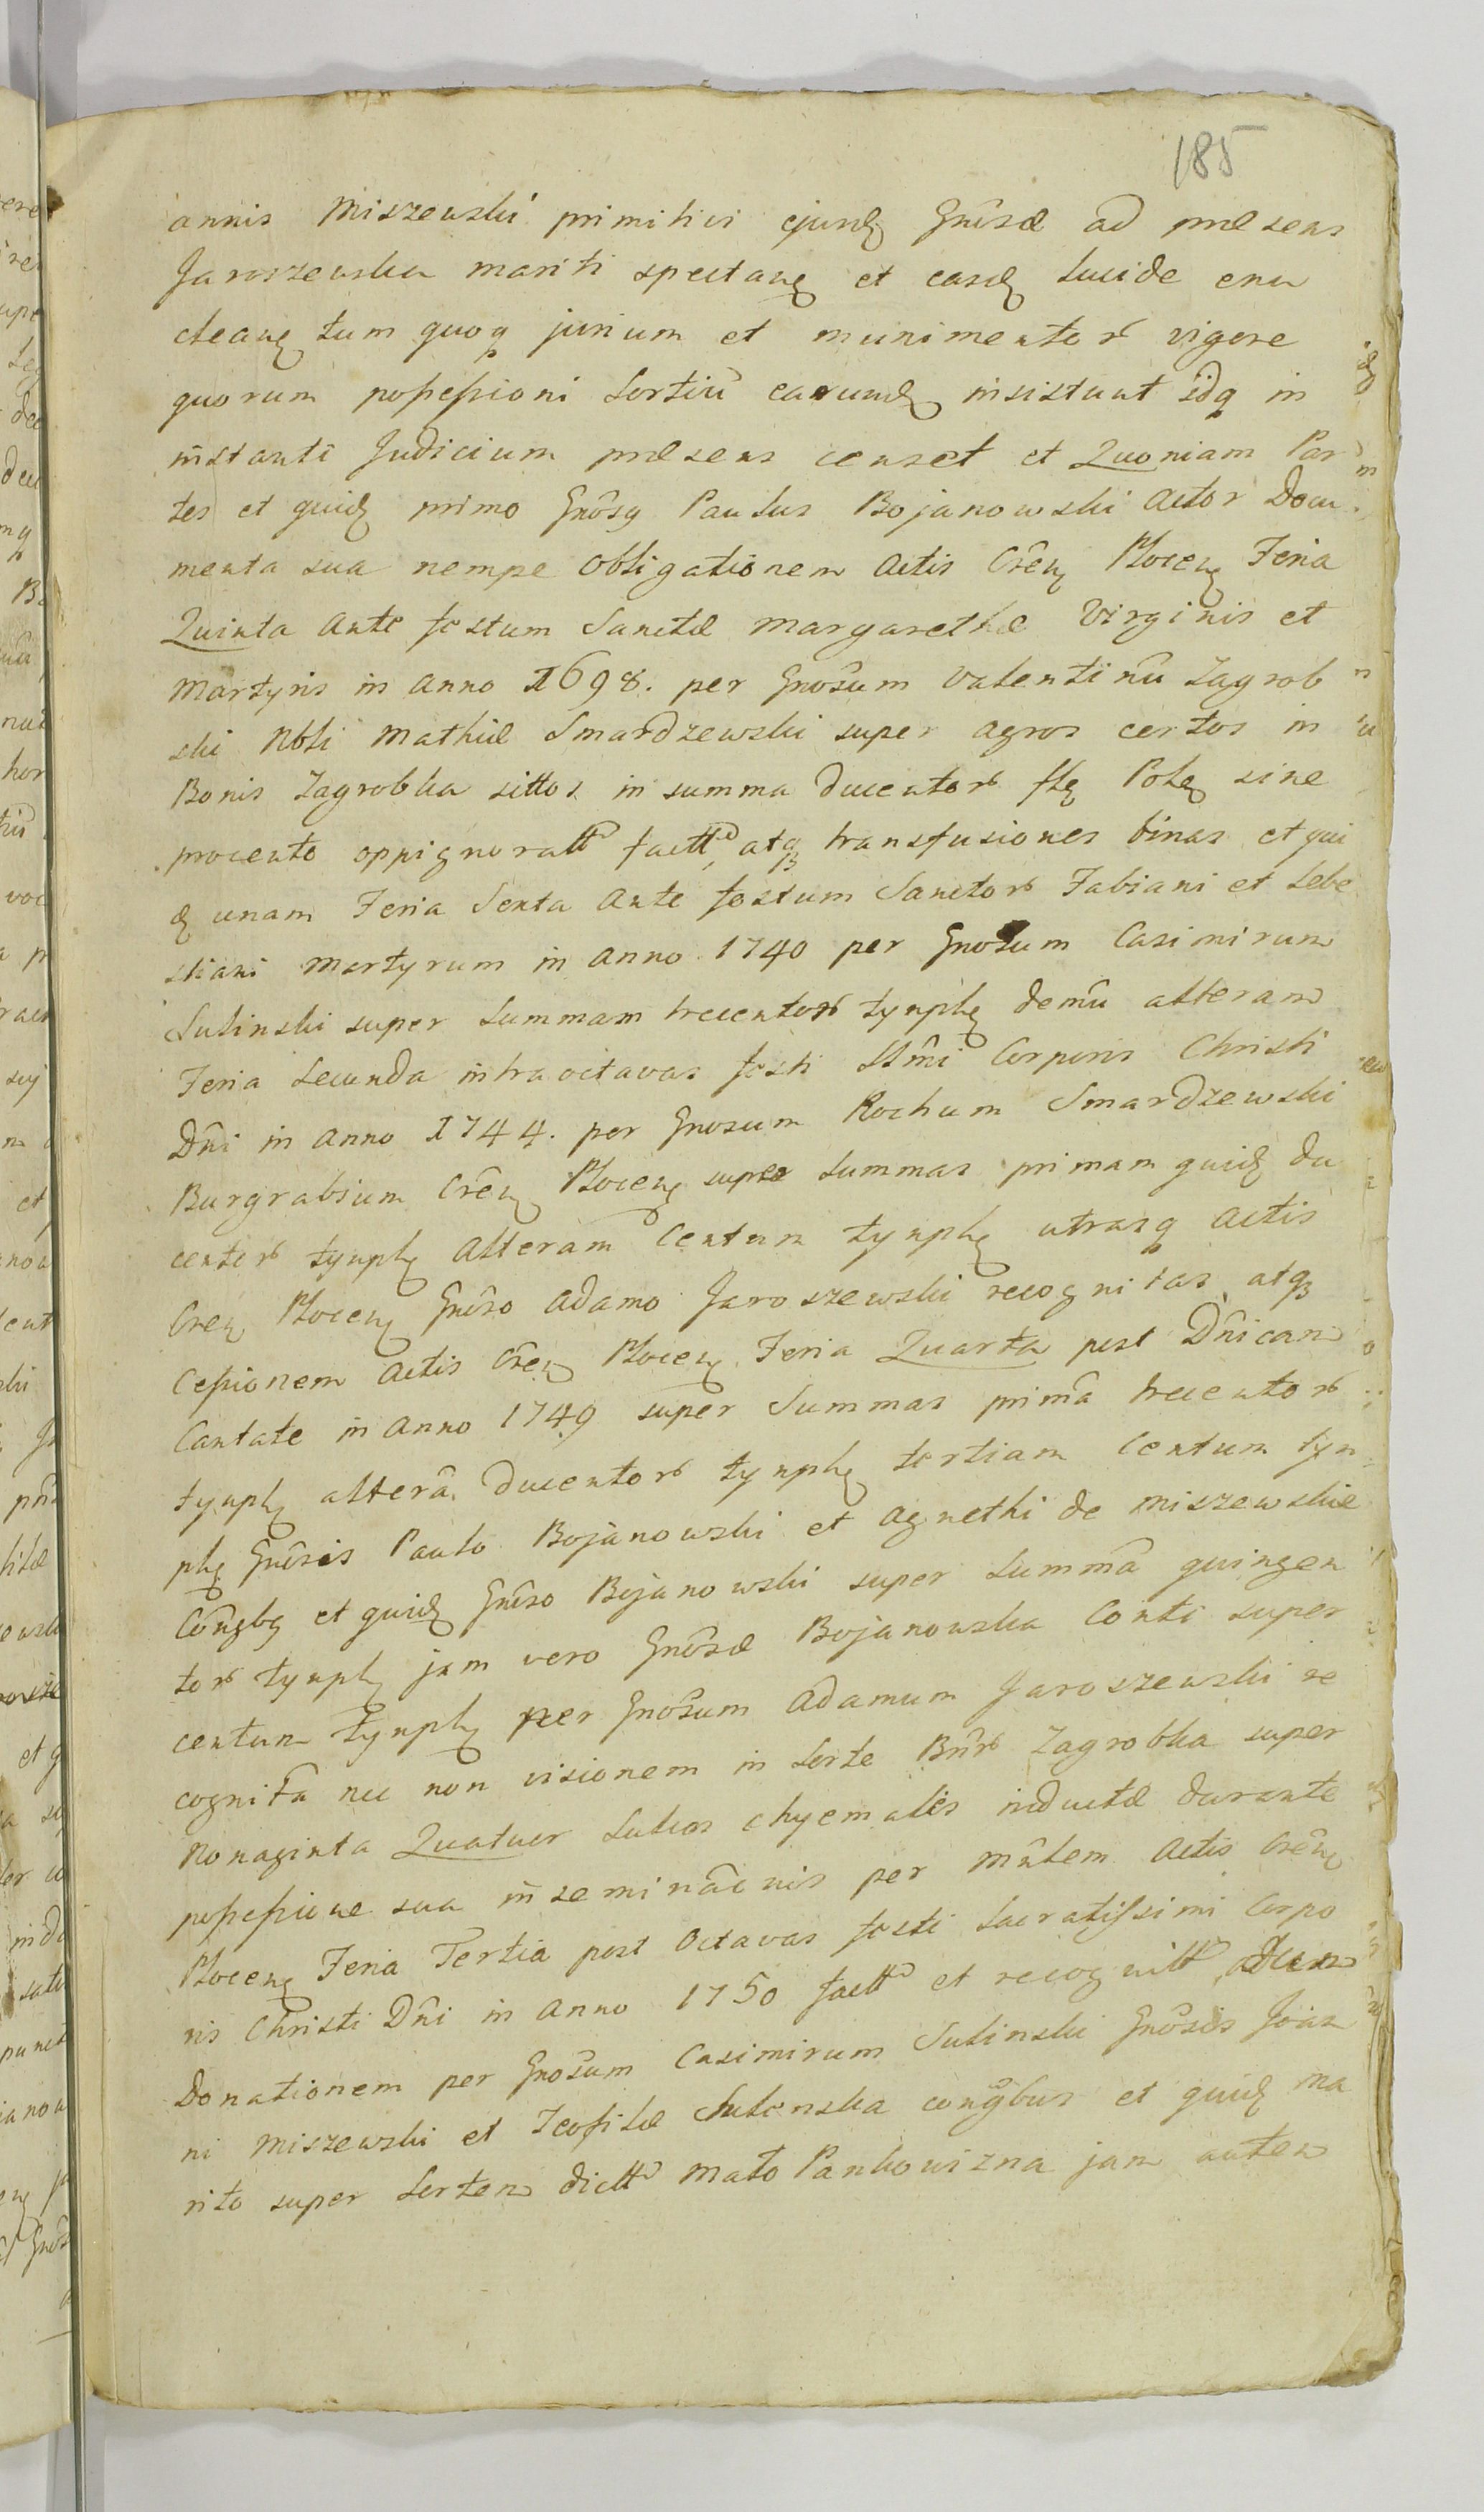 185
annis Miszewski primitivi ejusdꝫ Gnôsæ ad præsens
Jaroszewska mariti spectanꝫ et easdꝫ lucide enu
cleanꝫ tum quoqꝫ jurium et munimentorꝫ vigore
quorum possessioni Sortiũ earundꝫ insistunt idqꝫ in
instanti Judicium præsens censet et Quoniam Par
tes et quidꝫ primo Gnôsꝫ Paulus Bojanowski Actor Docu
menta sua nempe Obligationem Actis Crên̄ꝫ Plocenꝫ Feria
Quinta Ante festum Sanctæ Margarethæ Virginis et
Martyris in Anno 1698. per Gnôsum Valentinũ Zagrob
ski Nbli Mathiæ Smardzewski super Agros certos in
Bonis Zagrobka sittos in summa Ducentorꝫ flꝫ Polꝫ sine
procento oppignoratt͠ factt͠, atqꝫ transfusiones binas et qui
dꝫ unam Feria Sexta Ante festum Sanctorꝫ Fabiani et Seba
stiani Martyrum in Anno 1740 per Gnôsum Casimirum
Sulinski super Summam trecentorꝫ tynphꝫ demũ alteram
Feria Secunda intra octavas festi SSmî Corporis Christi
Dnî in Anno 1744. per Gnosum Rochum Smardzewski
Burgrabium Crênꝫ Plocenꝫ super Summas primam quidꝫ du
centorꝫ tynphꝫ Alteram Centum tynphꝫ utrasqꝫ Actis
Crenꝫ Plocenꝫ Gnôso Adamo Jaroszewski recognitas, atqꝫ
Cessionem Actis Crênꝫ Plocenꝫ Feria Quarta post Dnîcam
Cantate in Anno 1749 super Summas primã trecentorꝫ
tynphꝫ alterã Ducentorꝫ tynphꝫ tertiam Centum tyn
phꝫ Gnôsis Paulo Bojanowski et Agnethi de Miszewskie
Cõngbꝫ et quidꝫ Gnôso Bojanowski super Summã quingen
torꝫ tynphꝫ jam vero Gnôsæ Bojanowska Conti super
centum tynphꝫ per Gnôsum Adamum Jaroszewski re
cognitã nec non visionem in Sorte Bnrꝫ Zagrobka super
Nonaginta Quatuor Sulcos chyemales inductæ durante
possessione sua inseminãonis per Mñtem Actis Crênꝫ
Plocenꝫ Feria Tertia post Octavas festi Sacratissimi Corpo
ris Christi Dnî in Anno 1750 factt͠ et recognitt͠,
Donationem per Gnôsum Casimirum Sulinski Gnôsis Joañ
ni Miszewski et Teofilæ Sulinska congbus et quidꝫ Ma
rito super Sortem dictt͠ Mato Pankowizna jam autem